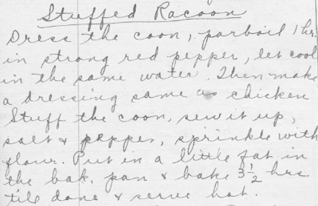 Stuffed Racoon
Dress the coon, parboil 1 hr.
in strong red pepper, let cool
in the same water. Then make
a dressing same as chicken
Stuff the coon, sew it up,
salt & pepper, sprinkle with
flour. Put in a little fat, in
the bak. pan & bake 3 1/2 hrs
tile done & serve hot.